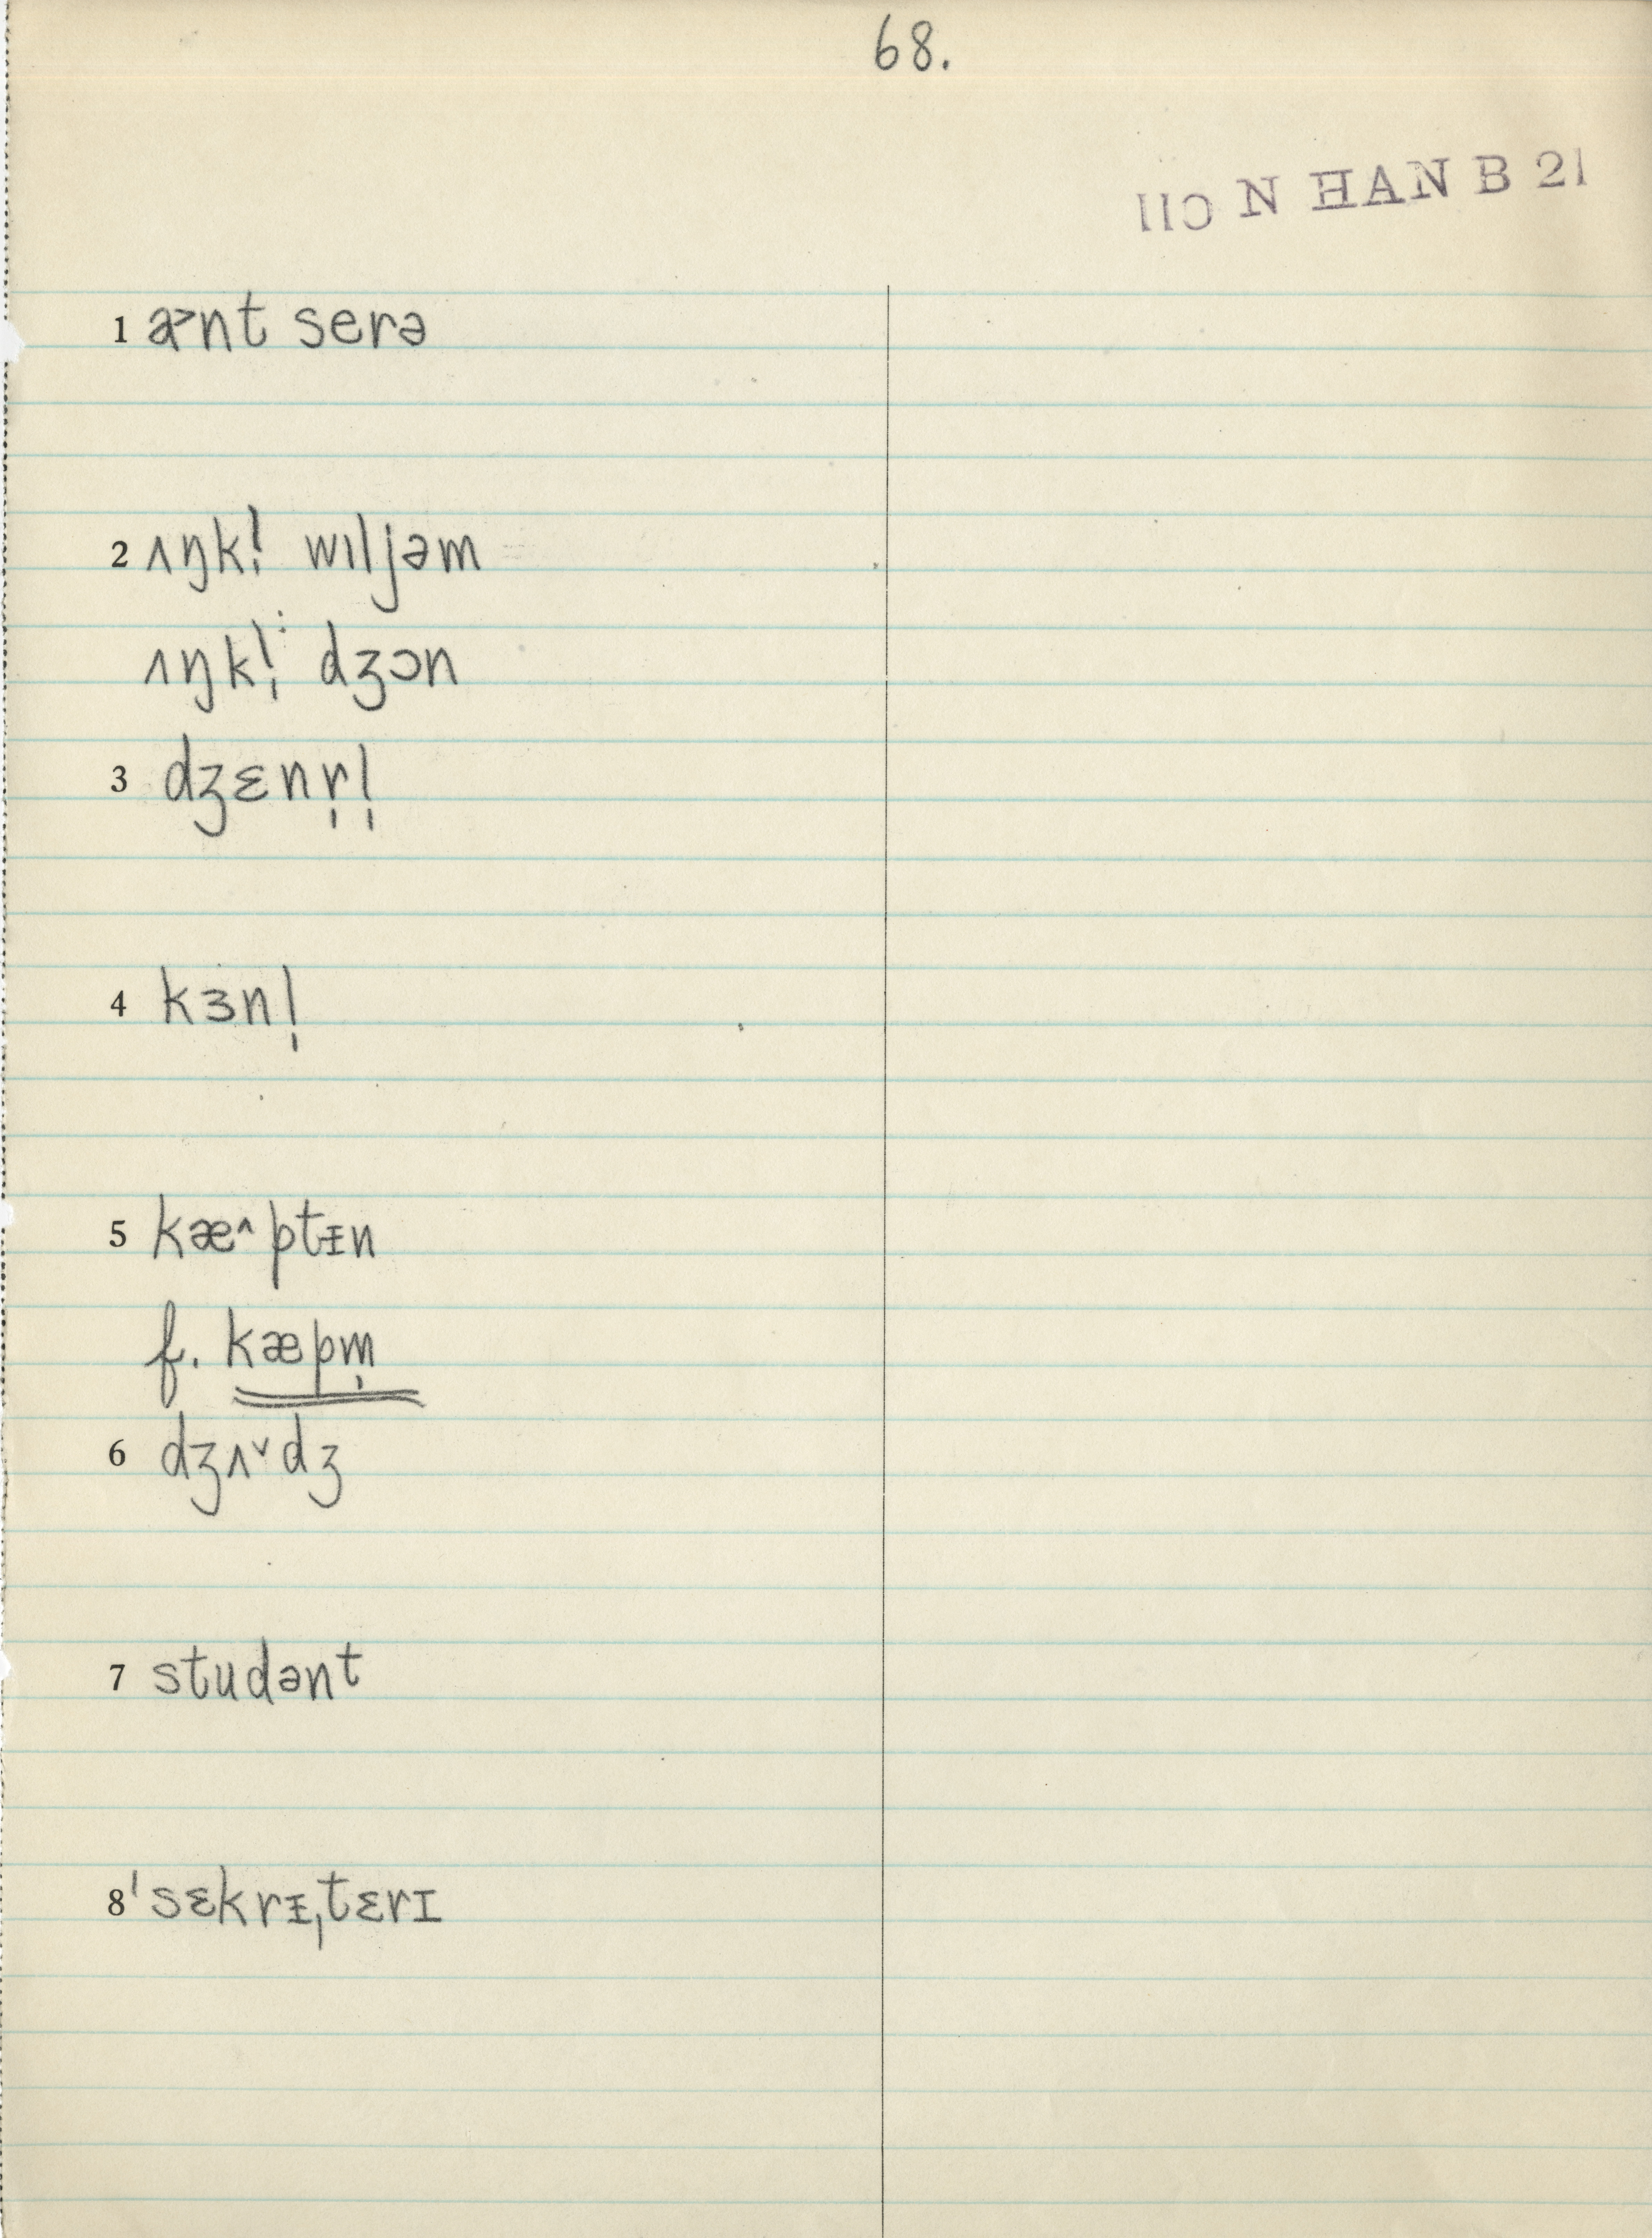 68.
110 N HAN B 21
1 æ˃nt serə
2 ʌŋkl̩ wɪljəm
ʌŋkl̩ dʒɔn
3 dʒɛnr̩l̩
4 kɜnl̩
5 kæ˄ptᵻn
f. kæpm̩
6 dʒʌ˅dʒ
7 studənt
8 ˈsɛkrᵻˌtɛrɪ